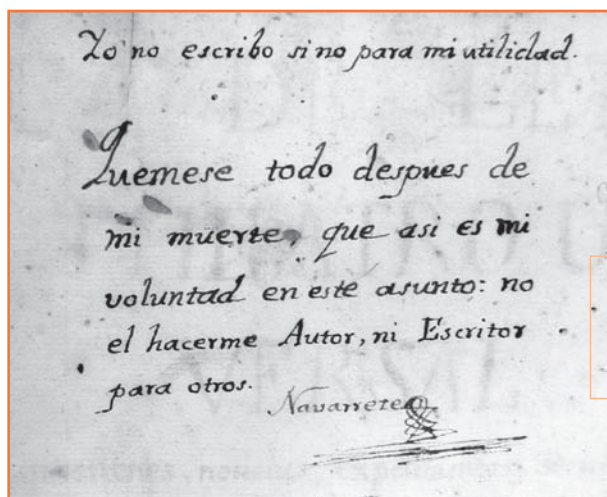 Yo no escribo sino para mi utilidad.
Quemese todo despues de
mi muerte, que asi es mi
voluntad en este asunto: no
el hacerme Autor, ni Escritor
para otros.
Navarrete